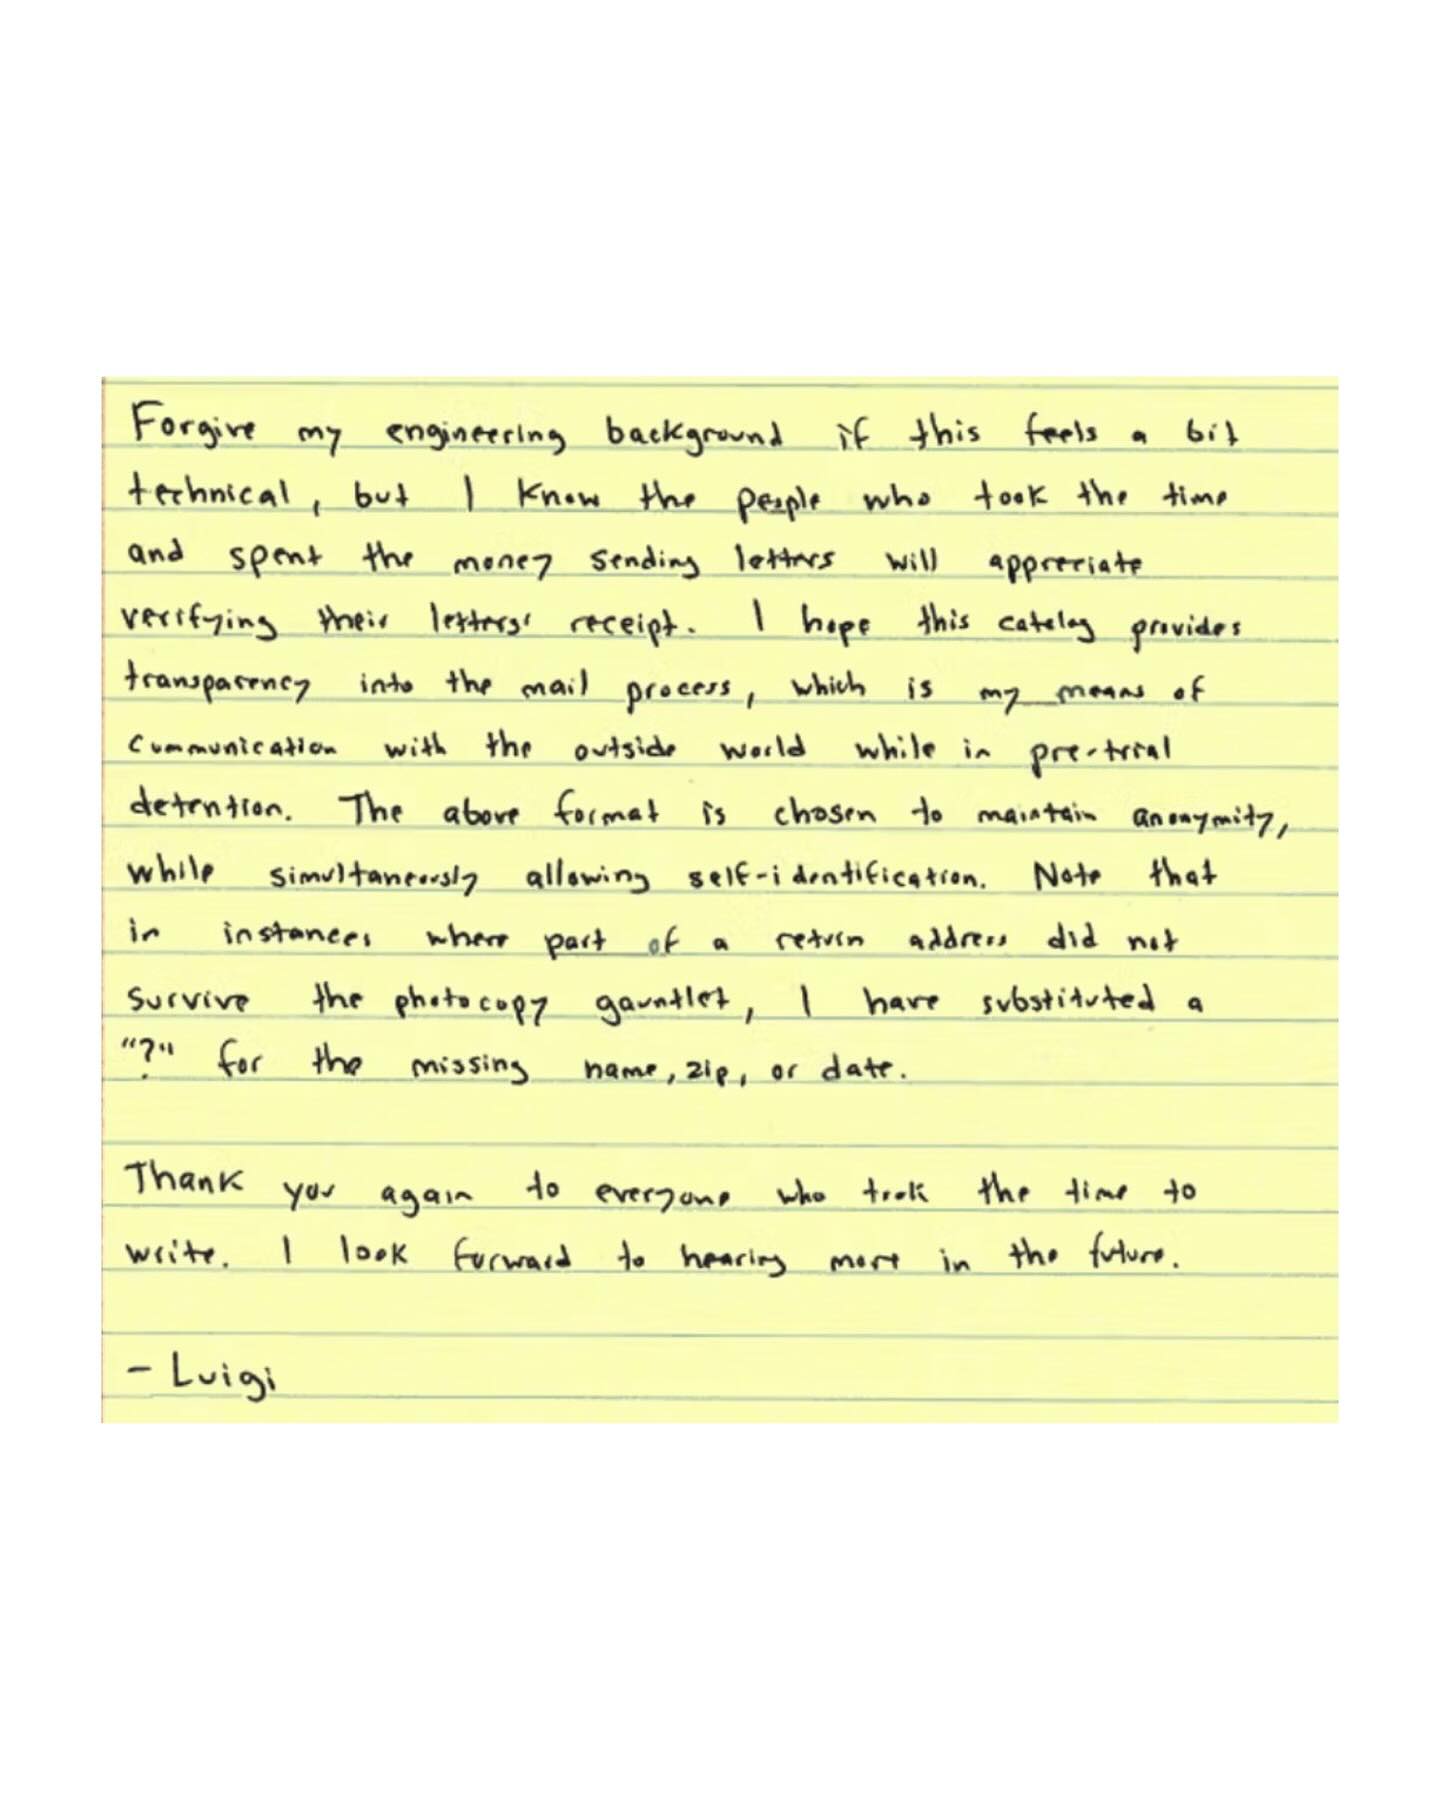 Forgive my engineering background if this feels a bit
technical, but I know the people who took the time
and spent the money sending letters will appreciate
verifying their letters' receipt. I hope this catelog provides
transparency into the mail process, which is my means of
communication with the outside world while in pre-trial
detention. The above format is chosen to maintain anonymity,
while simultaneously allowing self-identification. Note that
in instances where part of a return address did not
survive the photocopy gauntlet, I have substituted a
"?" for the missing name, zip, or date.
Thank you again to everyone who took the time to
write. I look forward to hearing more in the future.
- Luigi